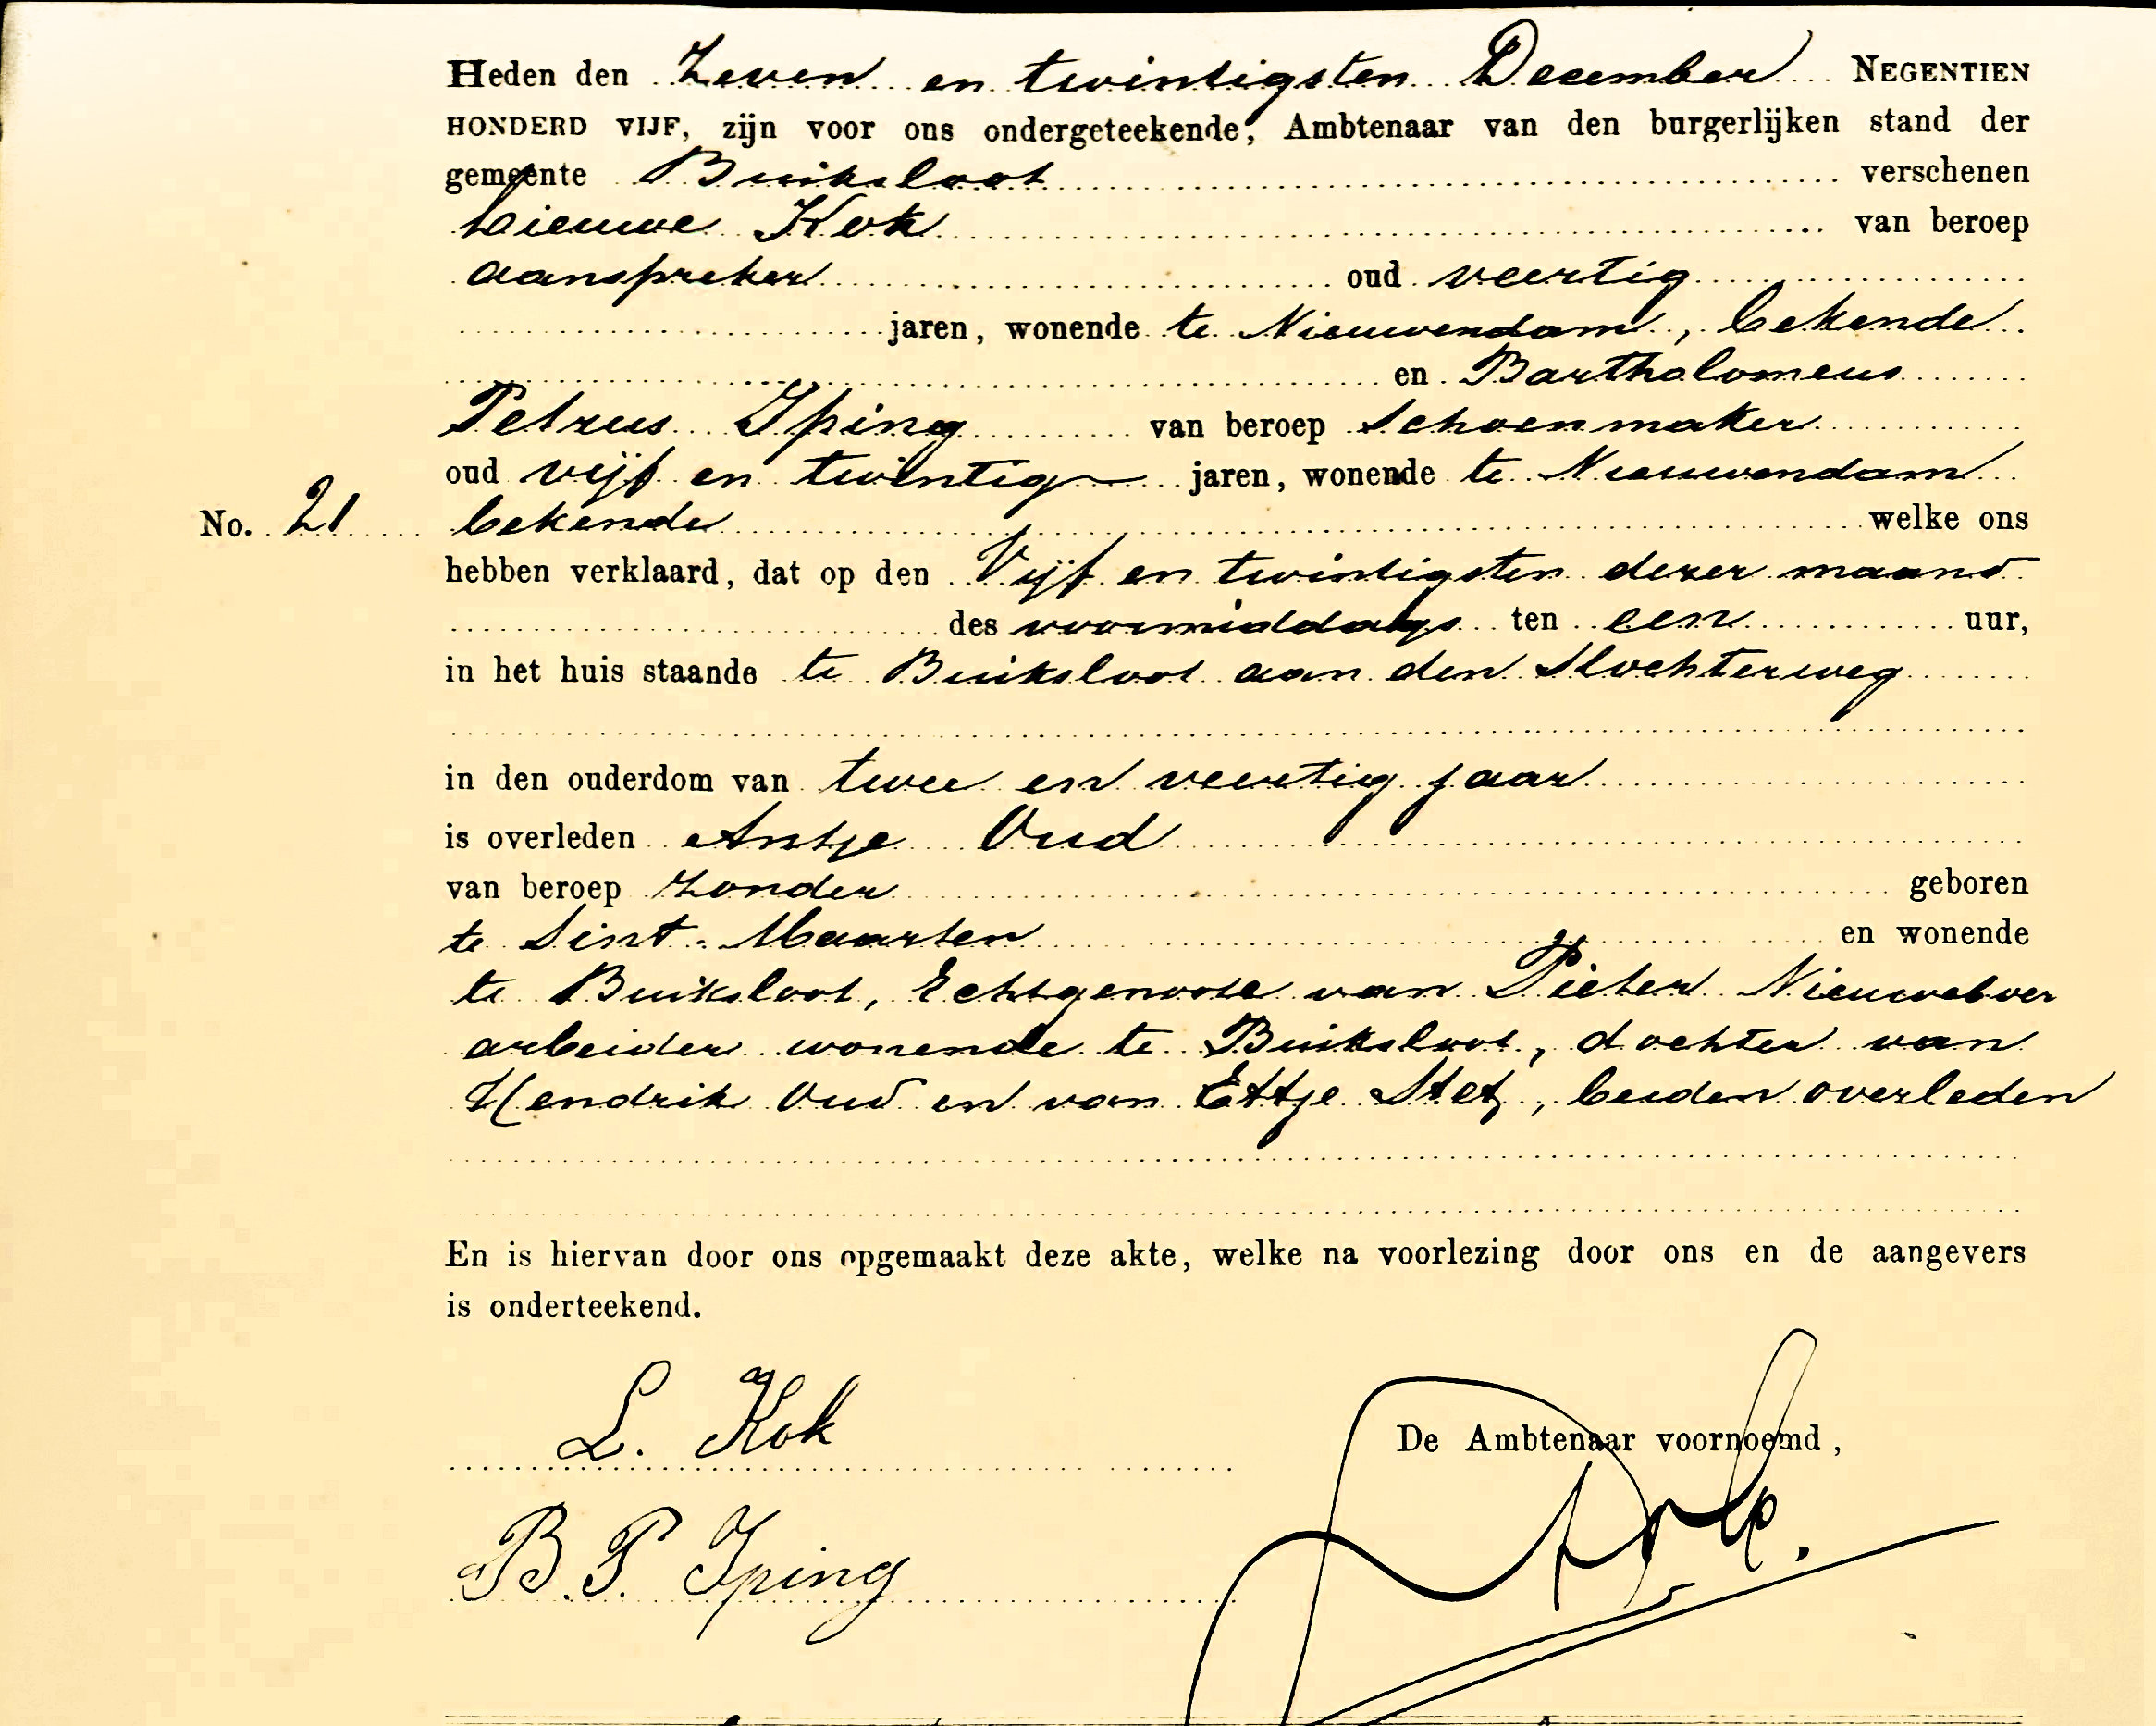 Heden den Zeven en twintigsten December NEGENTIEN
HONDERD VIJF, zijn voor ons ondergeteekende, Ambtenaar van den burgerlijken stand der
gemeente Buiksloot verschenen
Lieuwe Kok van beroep
aanspreker oud veertig
jaren, wonende te Nieuwendam, bekende
en Bartholomeus
Petrus IJping van beroep Schoenmaker
oud vijf en twintig jaren, wonende te Nieuwendam
No. 21 bekende welke ons
hebben verklaard, dat op den Vijf en twintigsten dezer maand
des voormiddags ten een uur,
in het huis staande te Buiksloot aan den Slochterweg
in den ouderdom van twee en veertig jaar
is overleden Antje Oud
van beroep zonder geboren
te Sint-Maarten en wonende
te Buiksloot, Echtgenoote van Pieter Nieuweboer
arbeider wonende te Buiksloot, dochter van
Hendrik Oud en van Ettje Stet, beiden overleden
En is hiervan door ons opgemaakt deze akte, welke na voorlezing door ons en de aangevers
is onderteekend.
L. Kok
De Ambtenaar voornoemd,
B. P. IJping